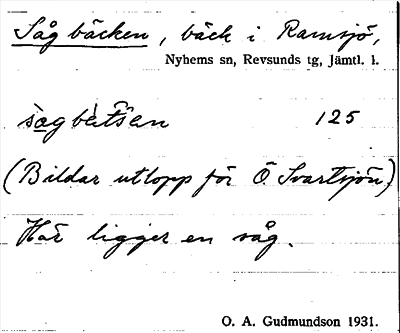 Sågbäcken, bäck i Ramsjö,
Nyhems sn, Revsunds tg, Jämtl. l.
125
(Bildar utlopp för Ö Svartsjön.)
Här ligger en såg.
O. A. Gudmundson 1931.